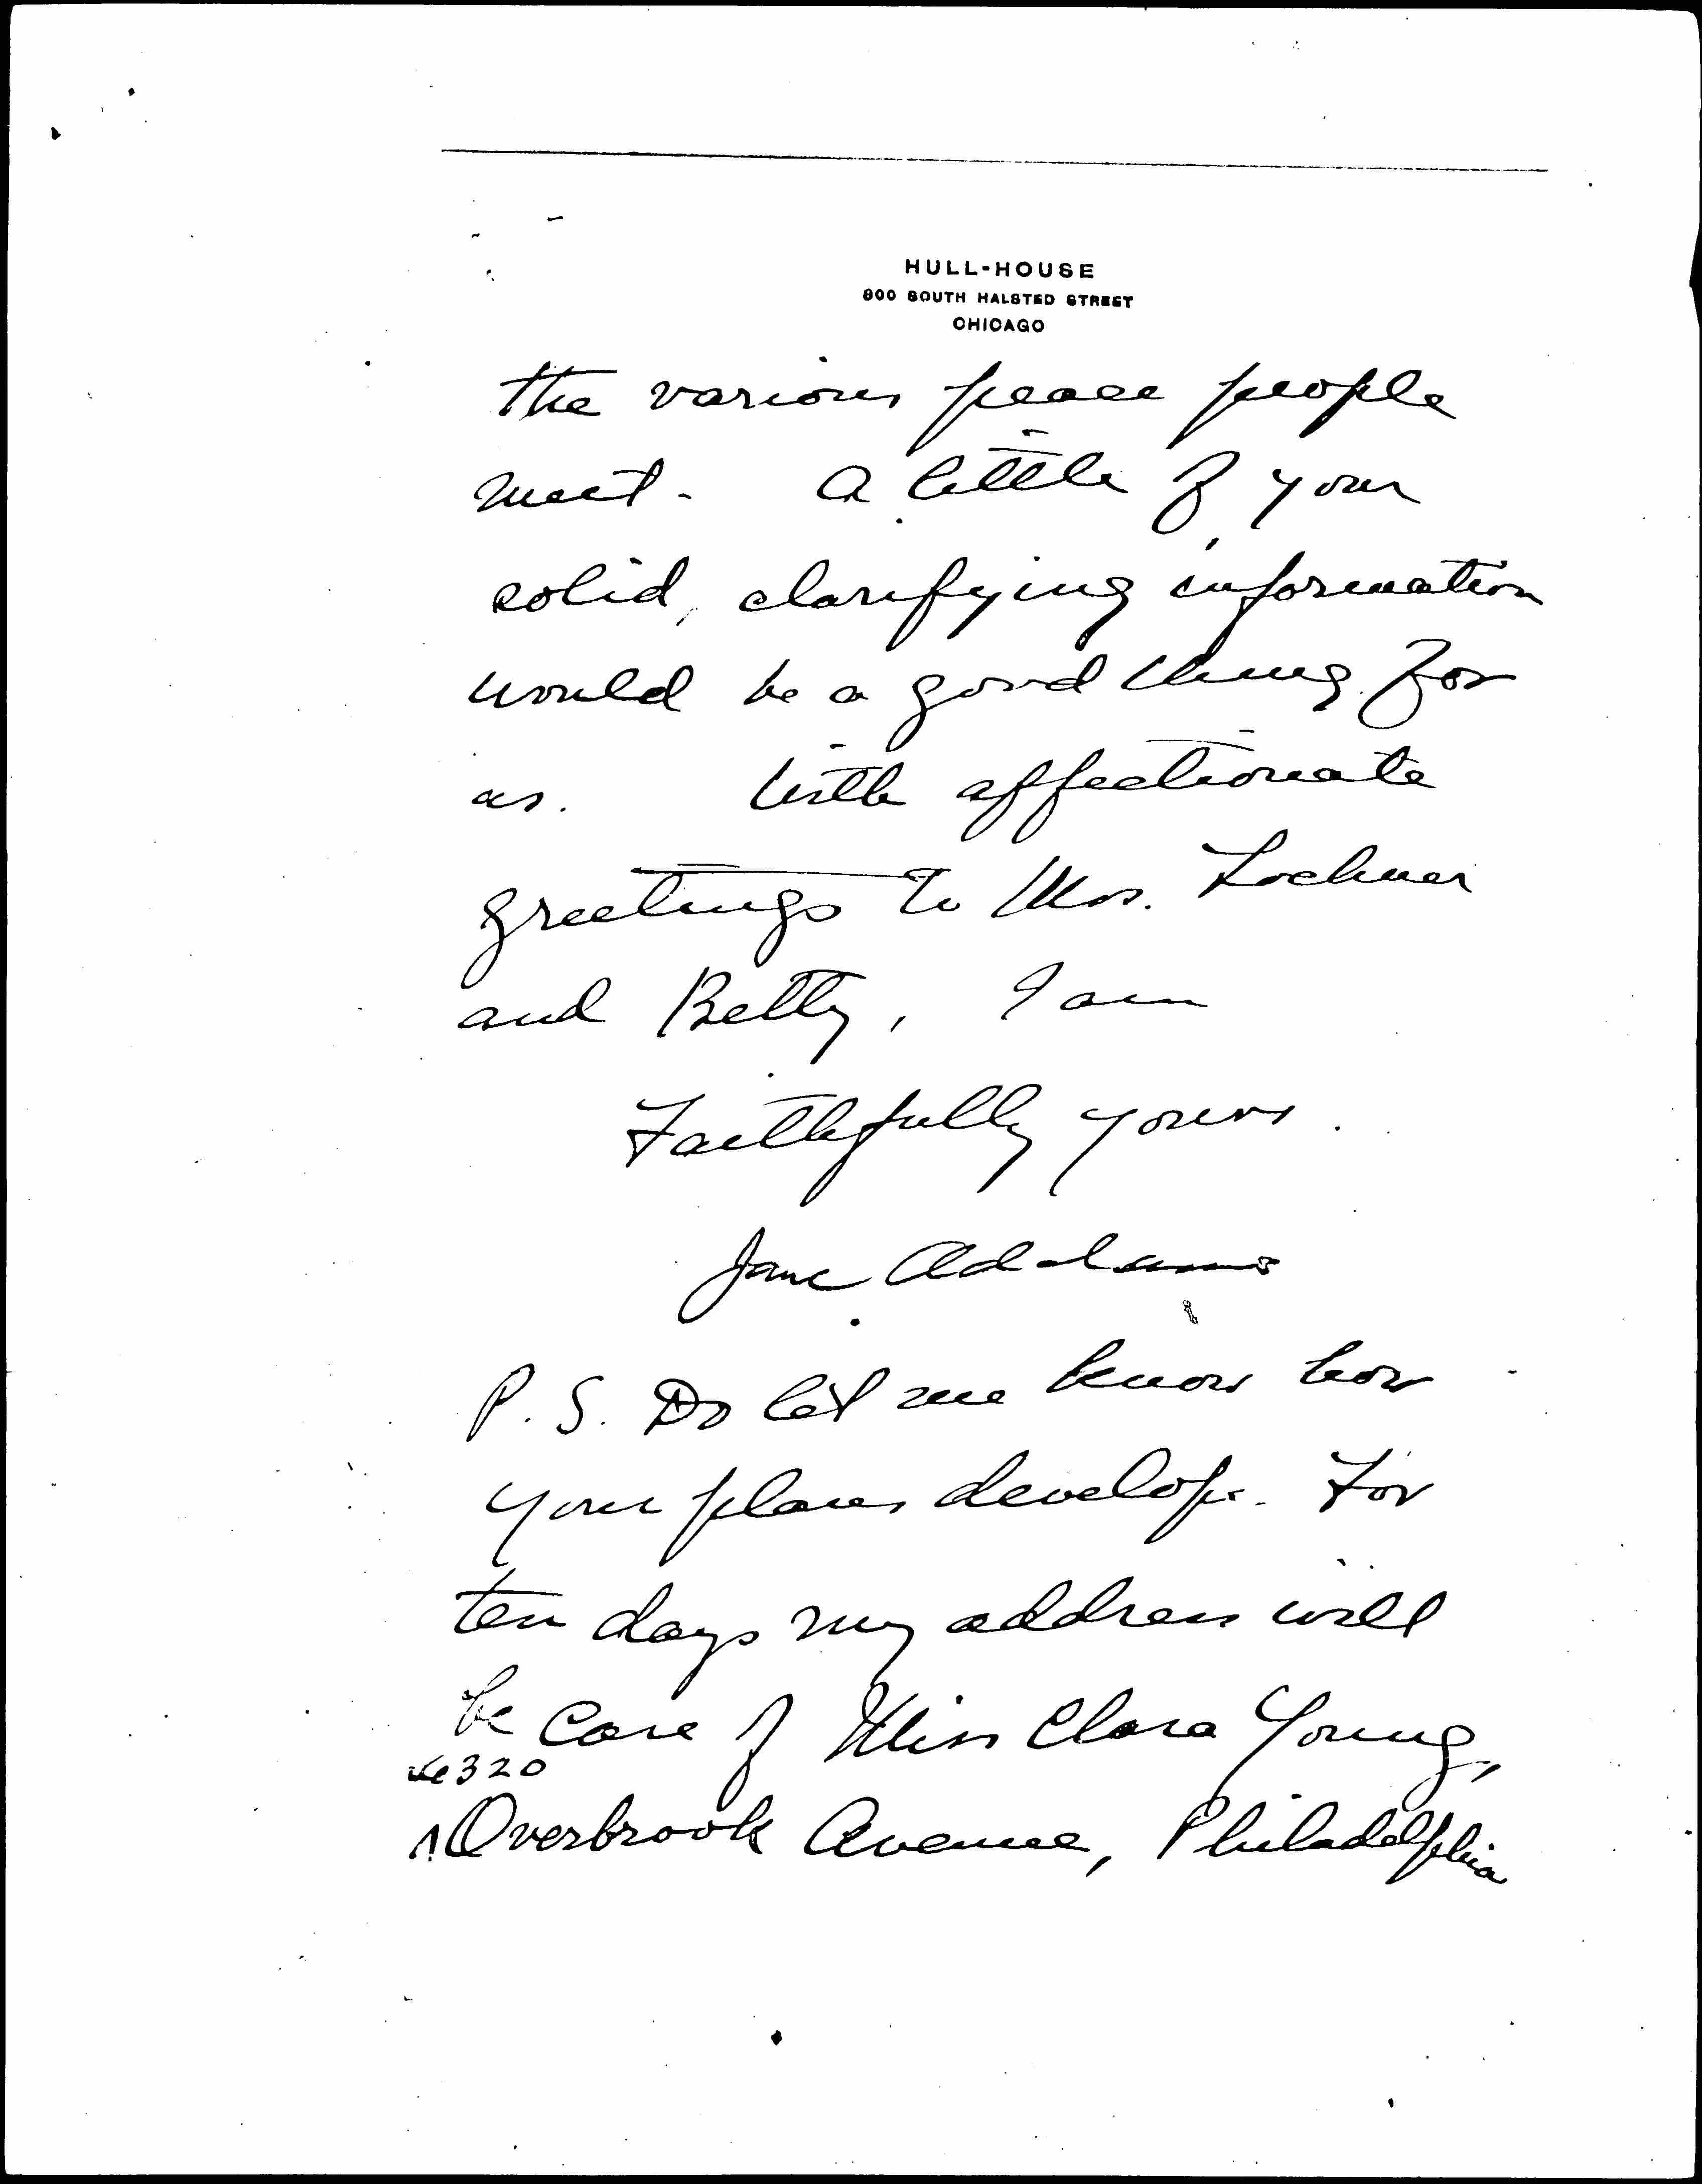 HULL-HOUSE
800 SOUTH HALSTED STREET
CHICAGO
the various peace people
meet. A little of your
solid, clarifying information
would be a good thing for
us. With affectionate
greetings to Mrs. Lochner
and Betty, I am
Faithfully yours.
Jane Addams
P.S. Do let me know how
your plans develope. For
ten days my address will
be care of Miss Clara Young,
6320
Overbrook Avenue, Philadelphia